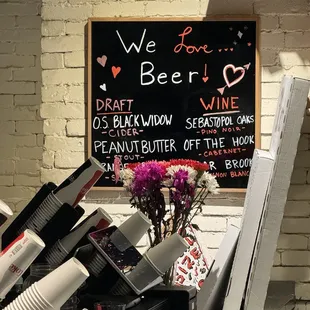 We Love...
Beer!
DRAFT
WINE
O.S. BLACK WIDOW
-CIDER-
SEBASTOPOL OAKS
-PINO NOIR-
PEANUT BUTTER
-STOUT-
OFF THE HOOK
-CABERNET-
BROOK
BLANC